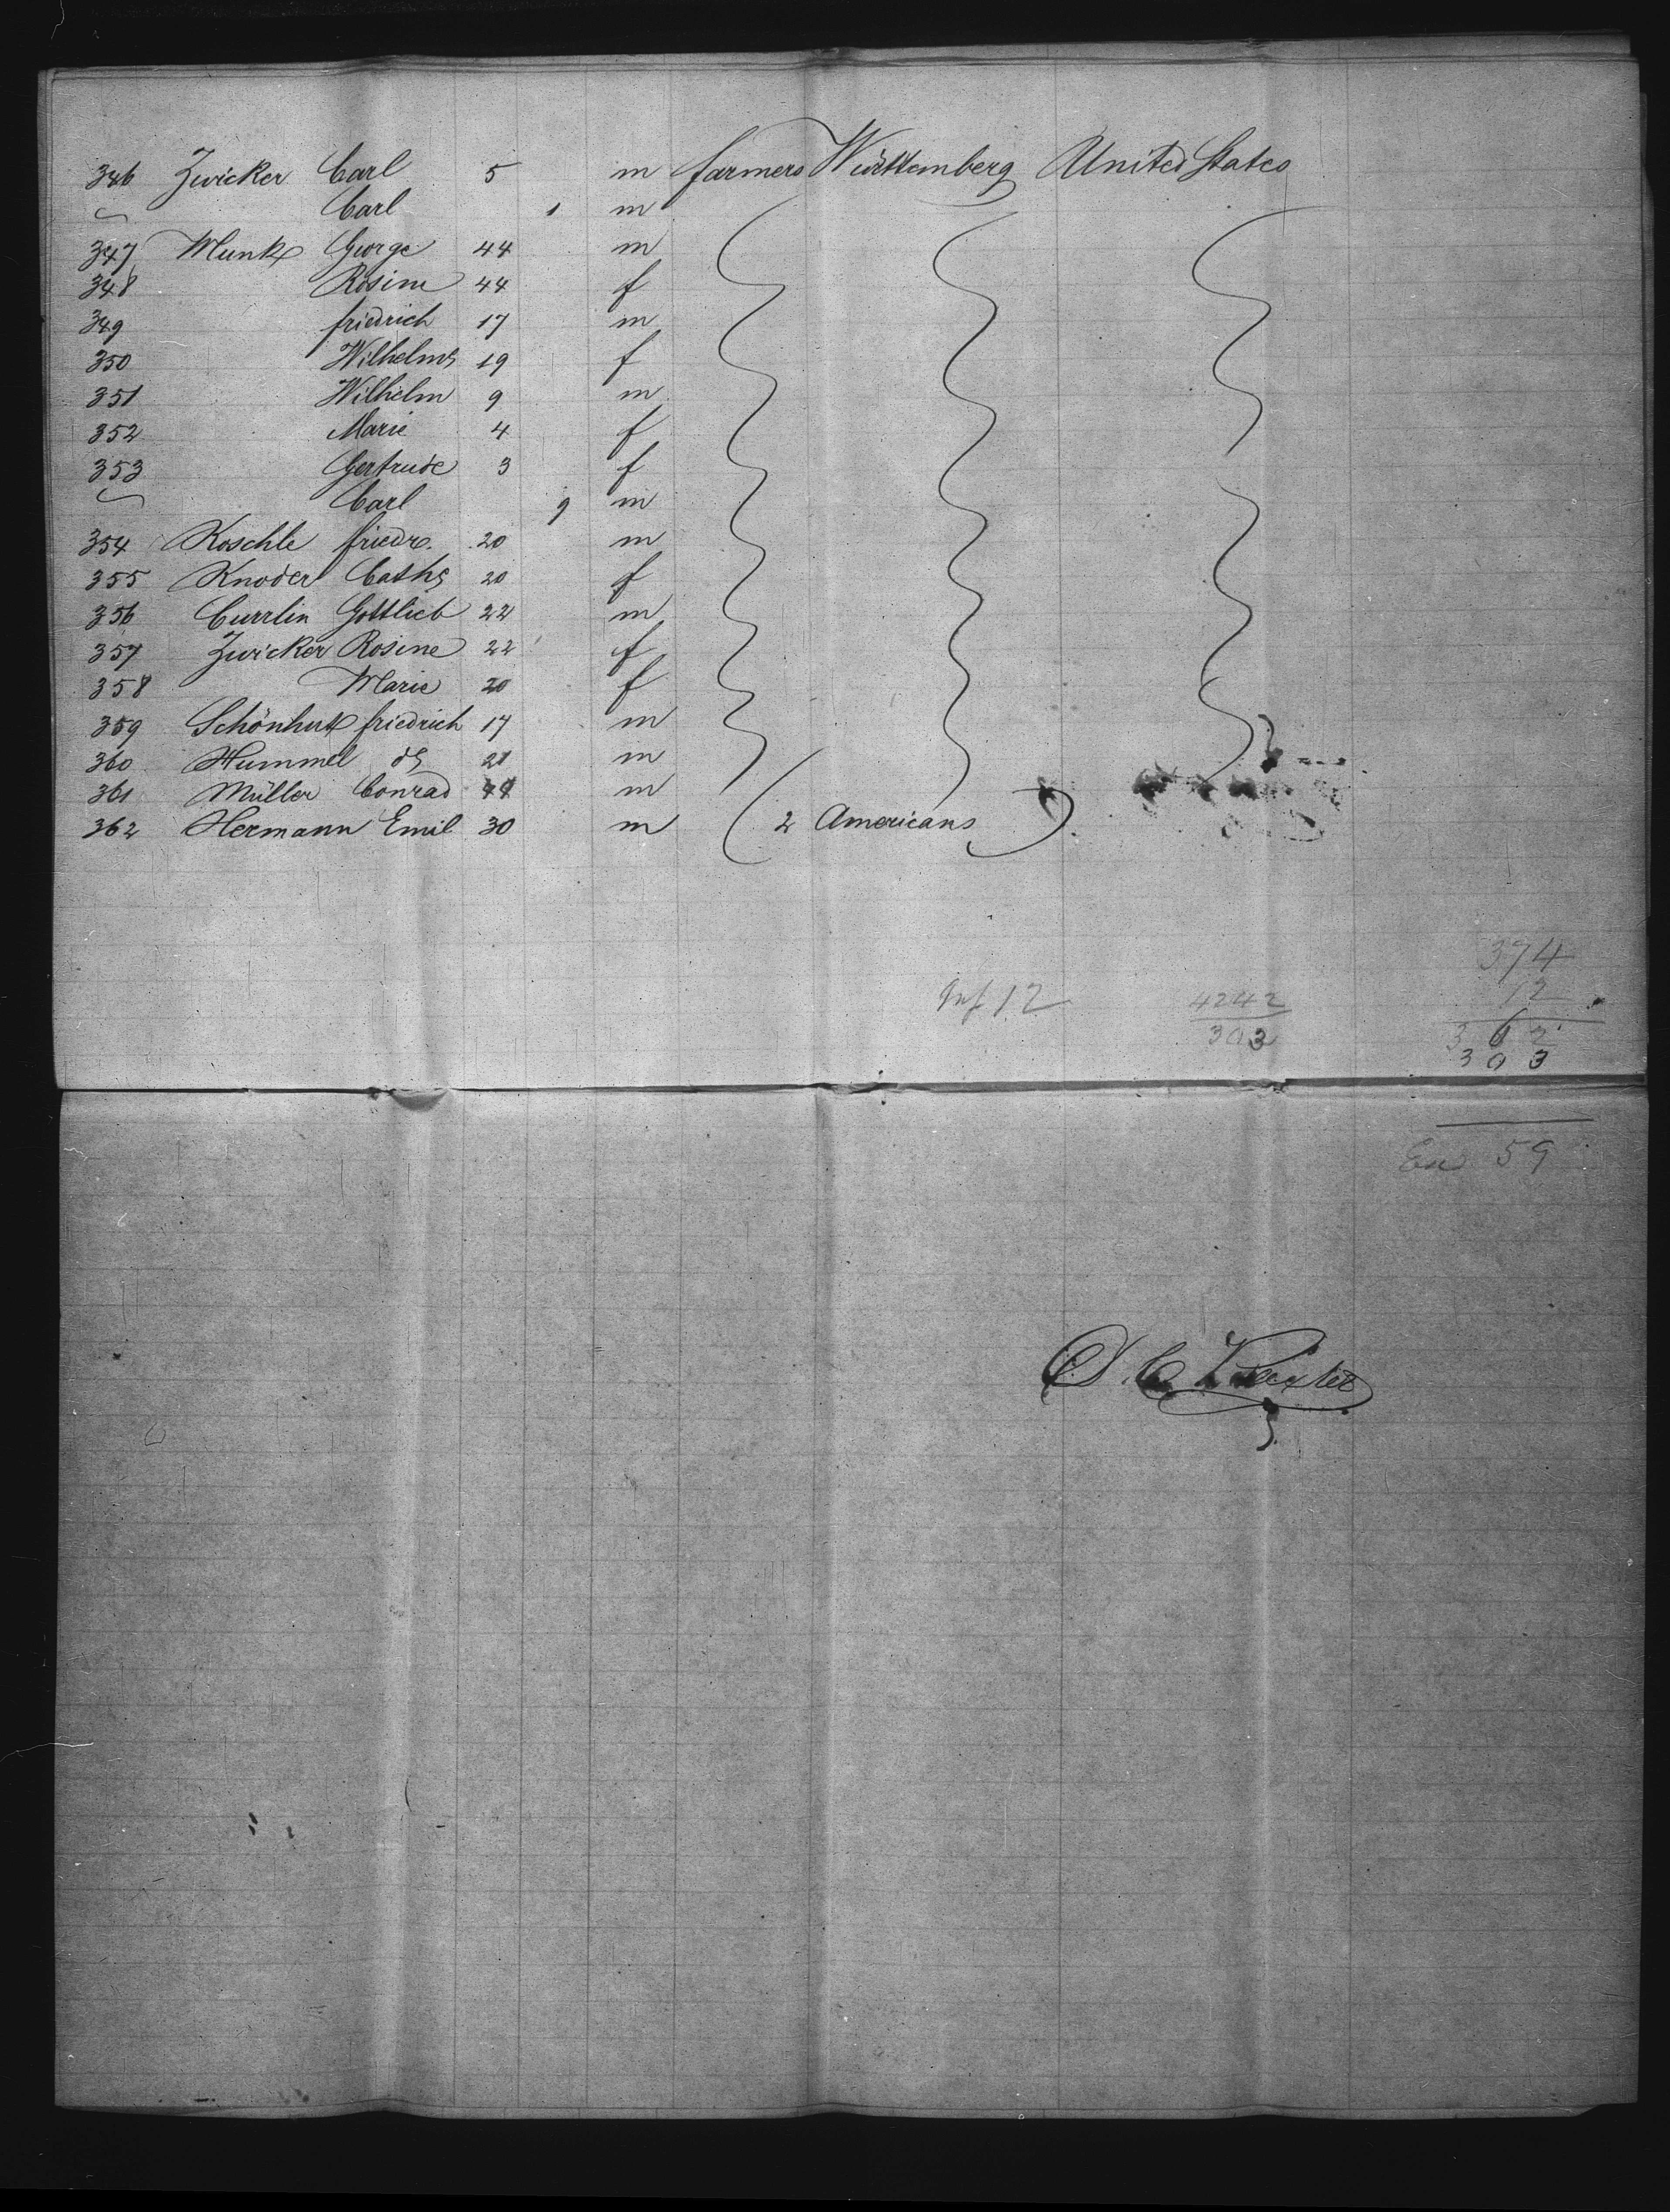 346 Zwicker Carl 5 m farmers Württemberg United States
Carl 1 m
347 Munk George 44 m
348 Rosine 44 f
349 friedrich 17 m
350 Wilhelme 19 f
351 Wilhelm 9 m
352 Marie 4 f
353 Gertrude 3 f
Carl 9 m
354 Koschle friedr. 20 m
355 Knoder Cathe 20 f
356 Currlin Gottlieb 22 m
357 Zwicker Rosine 22 f
358 Marie 20 f
359 Schönhut friedrich 17 m
360 Hummel do 21 m
361 Müller Conrad m
362 Hermann Emil 30 m (2 Americans)
374
Inf 12 4242 12
303 362
303
59